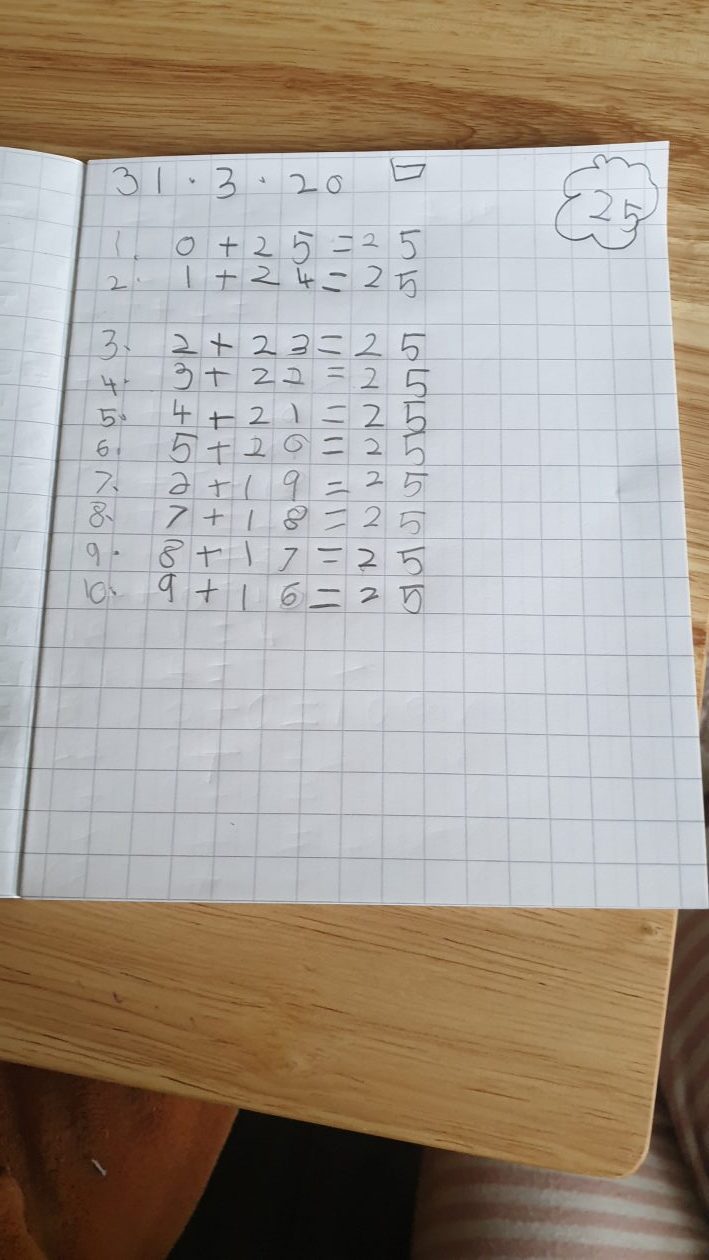 31.3.20
25
1. 0+25=25
2. 1+24=25
3. 2+23=25
4. 3+22=25
5. 4+21=25
6. 5+20=25
7. 2+19=25
8. 7+18=25
9. 8+17=25
10. 9+16=25